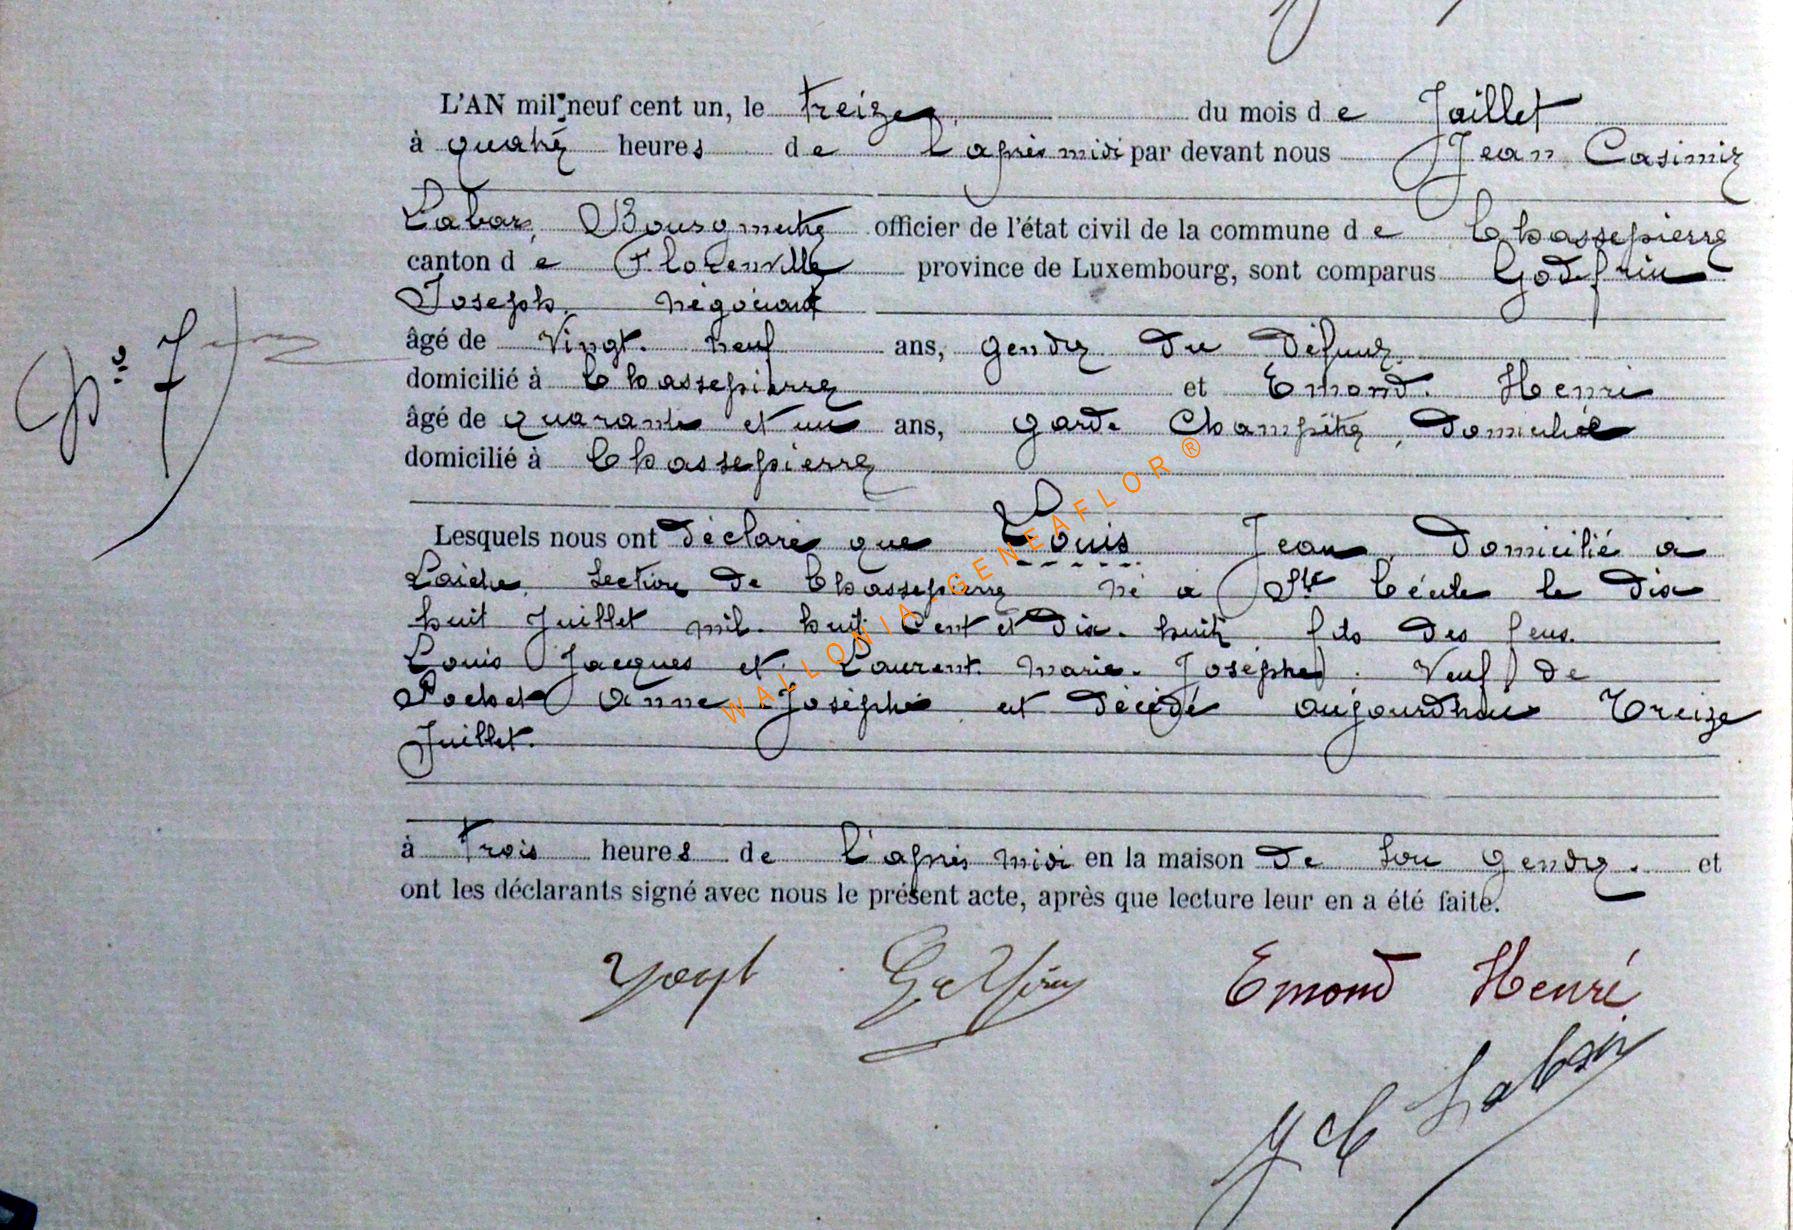 L'AN mil neuf cent un, le treize du mois de Juillet
à quatre heures de l'après midi par devant nous Jean Casimir
Labar, Bourgmestre officier de l'état civil de la commune de Chassepierre
canton de Florenville province de Luxembourg, sont comparus Godefrin
Joseph, négociant
âgé de Vingt-neuf ans, gendre du défunt
domicilié à Chassepierre et Emond Henri
N° 7
âgé de quarante et un ans, garde Champêtre, domicilié
domicilié à Chassepierre
Lesquels nous ont déclaré que Louis Jean, domicilié a
Laiche, Section de Chassepierre né à Ste Cécile le dix
huit Juillet mil-huit Cent et dix-huit fils des feus
Louis Jacques et Laurent Marie-Josèphe. Veuf de
Anne Josèphe est décédé aujourdhui Treize
Juillet.
à trois heures de l'après midi en la maison de Son gendre. et
ont les déclarants signé avec nous le présent acte, après que lecture leur en a été faite.
Emond Henri
J C Labar
WALLONIA-GENEAFLOR®